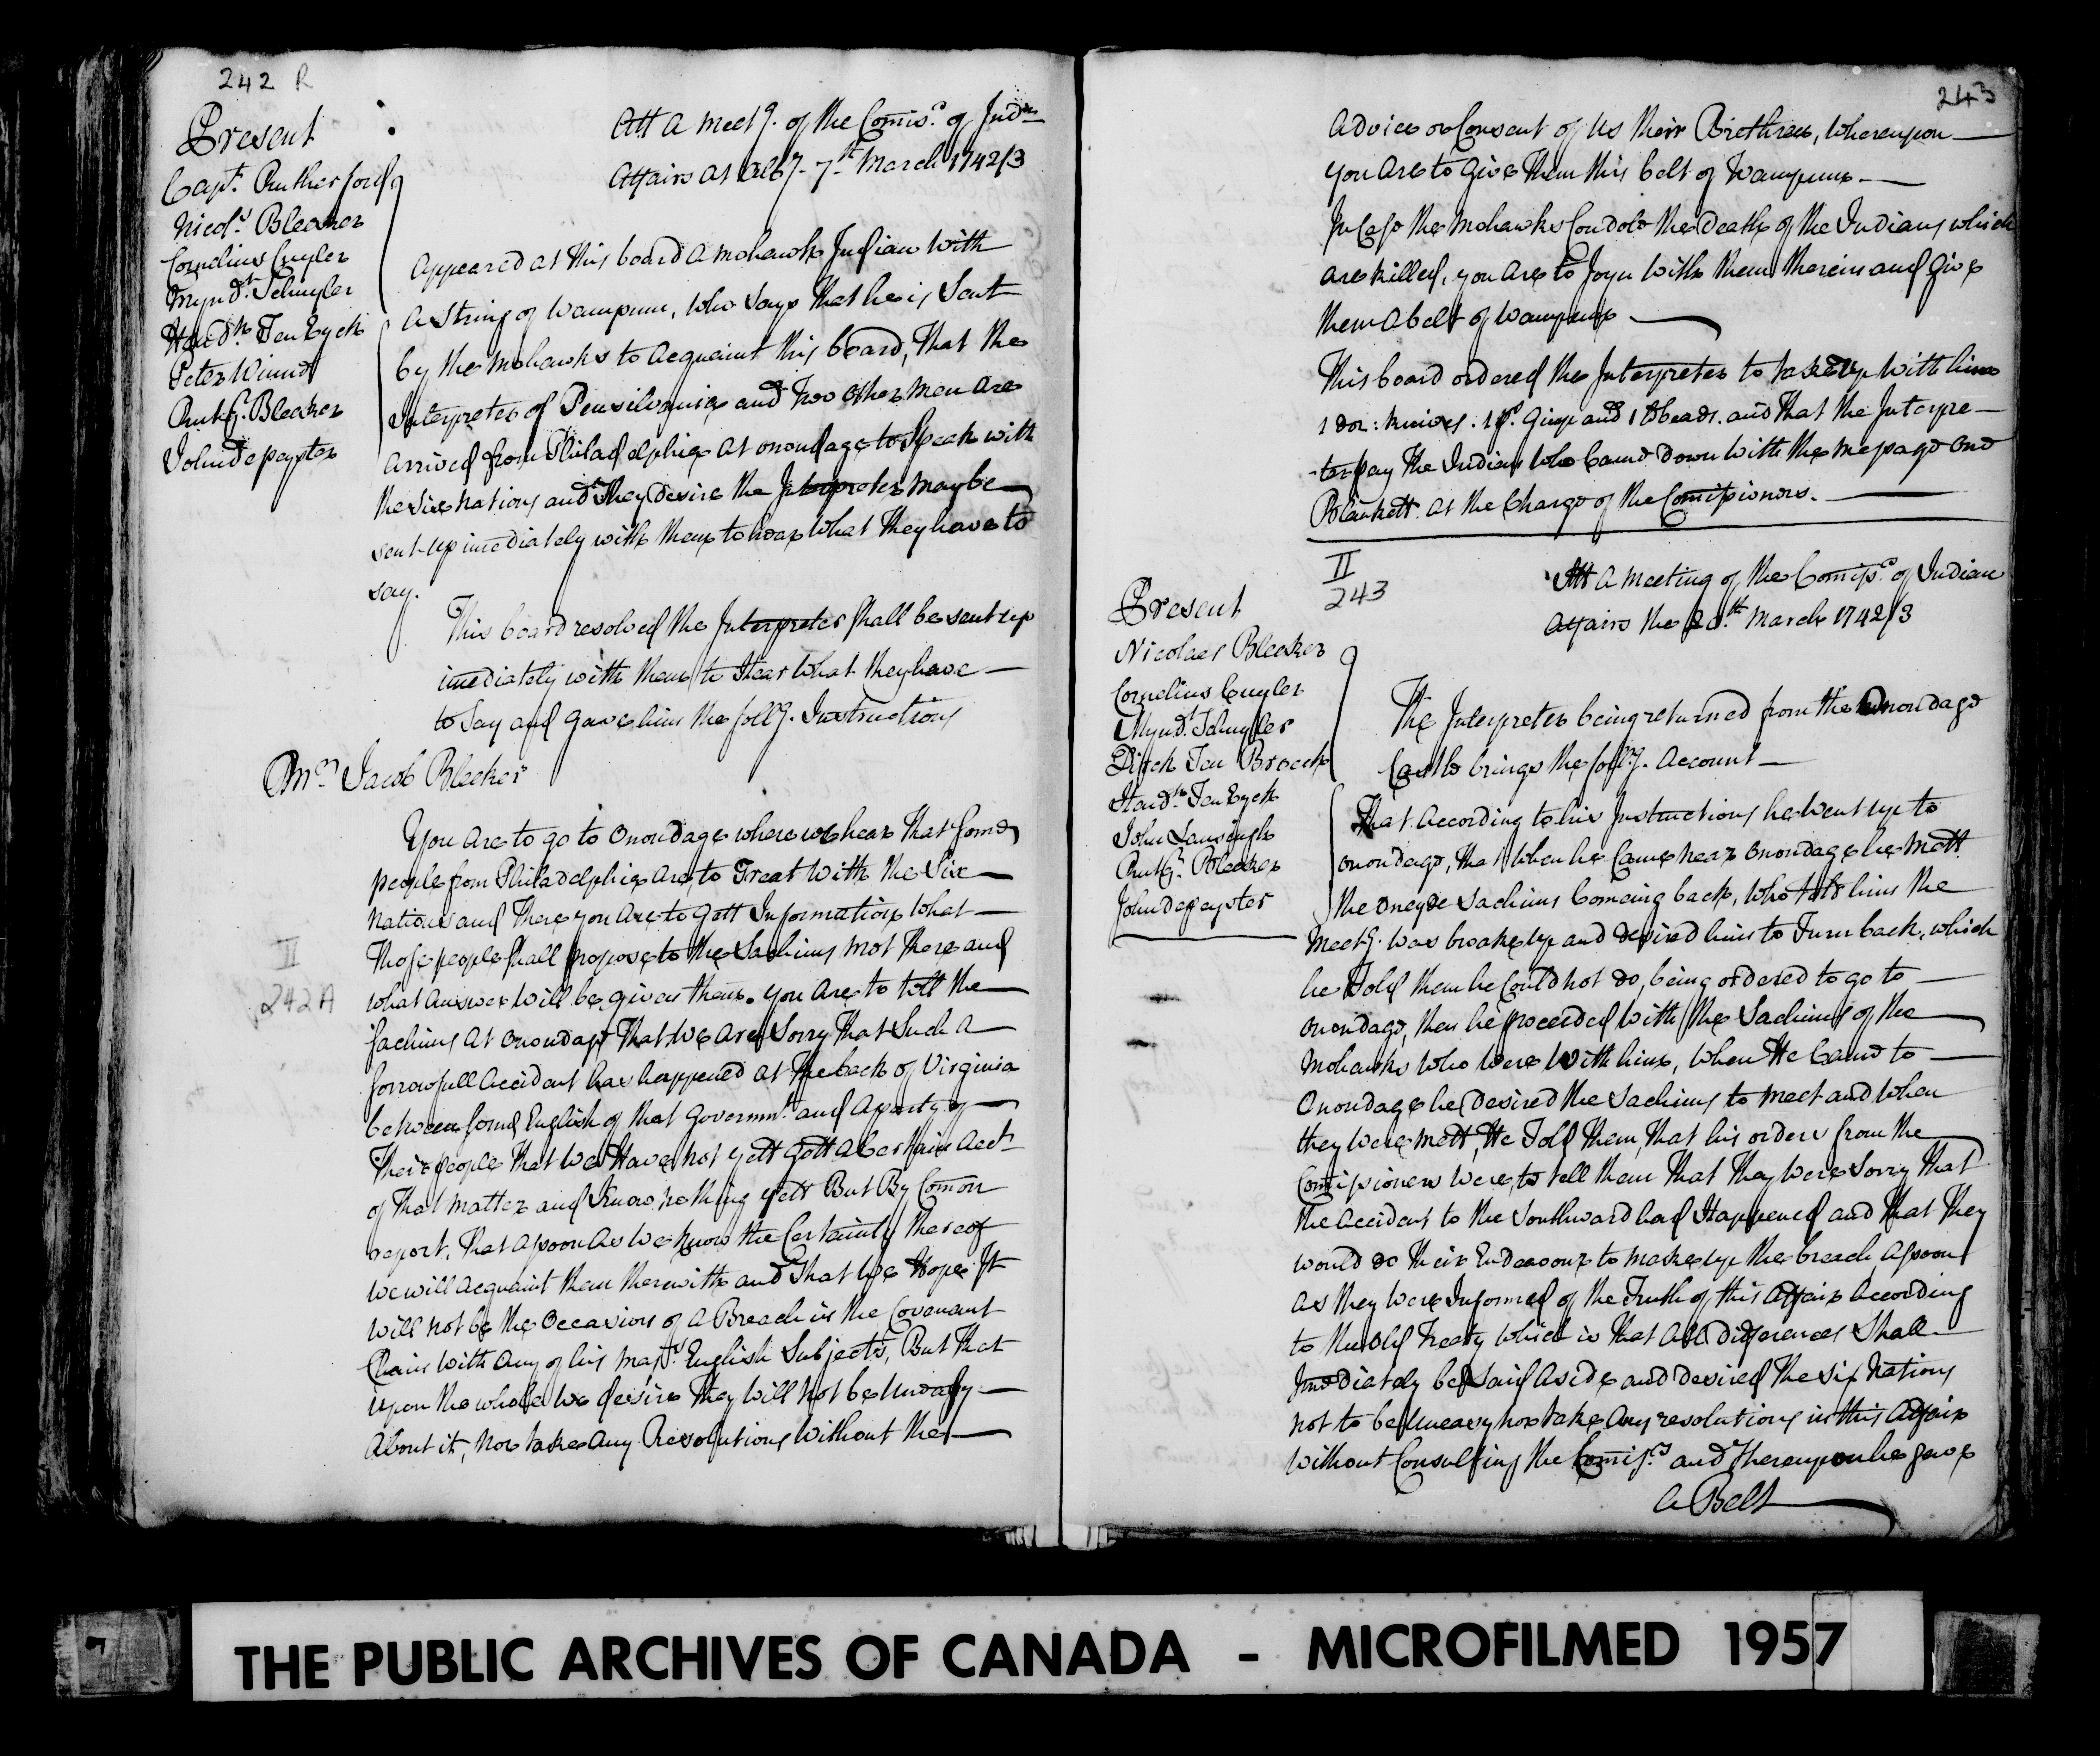 242 R
Present
Capt. Rutherford
Nicols Bleeker
Cornelius Cuyler
Myndt. Schuyler
Hendk. Ten Eyck
Peter Winne
Rutg. Bleeker
John depeyster
Att a meetg. of the Comisrs. of Indn
Affairs at Alby. 7th March 1742/3
Appeared at this board a mohawk Indian with
a String of Wampum, who says that he is Sent
by the mohawks to acquaint this board, That the
Interpreter of Pensilvania and Two other men are
arrived from Philadelphia at onondage to Speak with
the six nations and they desire the Interpreter may be
sent up imediately with them to hear what they have to
say.
This board resolved the Interpreter shall be sent up
imediately with them to Hear what they have
to say and gave him the follg. Instructions
Mr. Jacob Bleeker
You are to go to Onondage where we hear that some
people from Philadelphia are to Treat with the Six
nations and there you are to gett Information what
II
242 A
Those people shall propose to the Sachims mot there and
what answer will be given them. you are to tell the
sachims at onondage That we are Sorry That Such a
sorrowfull accident has happened at the back of Virginia
between some English of that governmt. and a party of
Their people That we Have not yett gott a Certain acct.
of That matter and know nothing yett But By Comon
report. That assoon as we know the Certainty thereof
we will acquaint them therewith and That we Hope It
will not be the Occasion of a Breach in the Covenant
Chain with any of his Majts. English Subjects, But That
upon the whole we desire they will not be Uneasy
about it, nor take any Resolutions without the
243
advice or Consent of Us their Brethren, whereupon
you are to give them this belt of Wampum
In Case the Mohawks Condole the death of the Indians which
are killed, you are to Joyn with them therein and give
them a belt of wampum
This board ordered the Interpreter to take up with him
1 doz: knives. 1 ps. gimp and 1 lb beads. and That the Interpre-
-ter pay the Indian who Came down with the message one
Blankett. at the Charge of the Comissioners.
II
243
Att a meeting of the Comissrs. of Indian
Affairs the 20th. March 1742/3
Present
Nicolaes Bleeker
Cornelius Cuyler
Myndt. Schuyler
Dirck Ten Broeck
Hendk. Ten Eyck
John Lansingh
Rutgr. Bleeker
John depeyster
The Interpreter being returned from the Onondage
Castle brings the follg. Account
That According to his Instructions he went up to
onondage, That when he Came near onondage he mett
the oneyde Sachims Comeing back, who told him the
meetg. was broake up and desired him to Turn back, which
he Told them he Could not do, being ordered to go to
onondage, then he proceeded with the Sachims of the
Mohawks who were with him, when He Came to
Onondage he desired the Sachims to meet and when
they were mett, He Told them, That his orders from the
Comissioners were, to tell them That They were Sorry that
the accident to the Southward had Happened and that They
would do their Endeavour to make up the breach assoon
as they were Informed of the Truth of this Affair according
to the old Treaty which is That all differences Shall
Imediately be Laid aside and desired the six Nations
not to be Uneasy nor take any resolutions in this Affair
without Consulting the Comissrs and Thereupon he gave
a Belt
THE PUBLIC ARCHIVES OF CANADA - MICROFILMED 1957